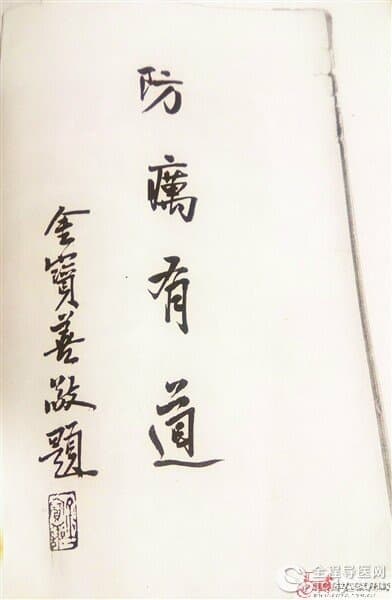 防癘有道
金寶善敬題
全程导医网